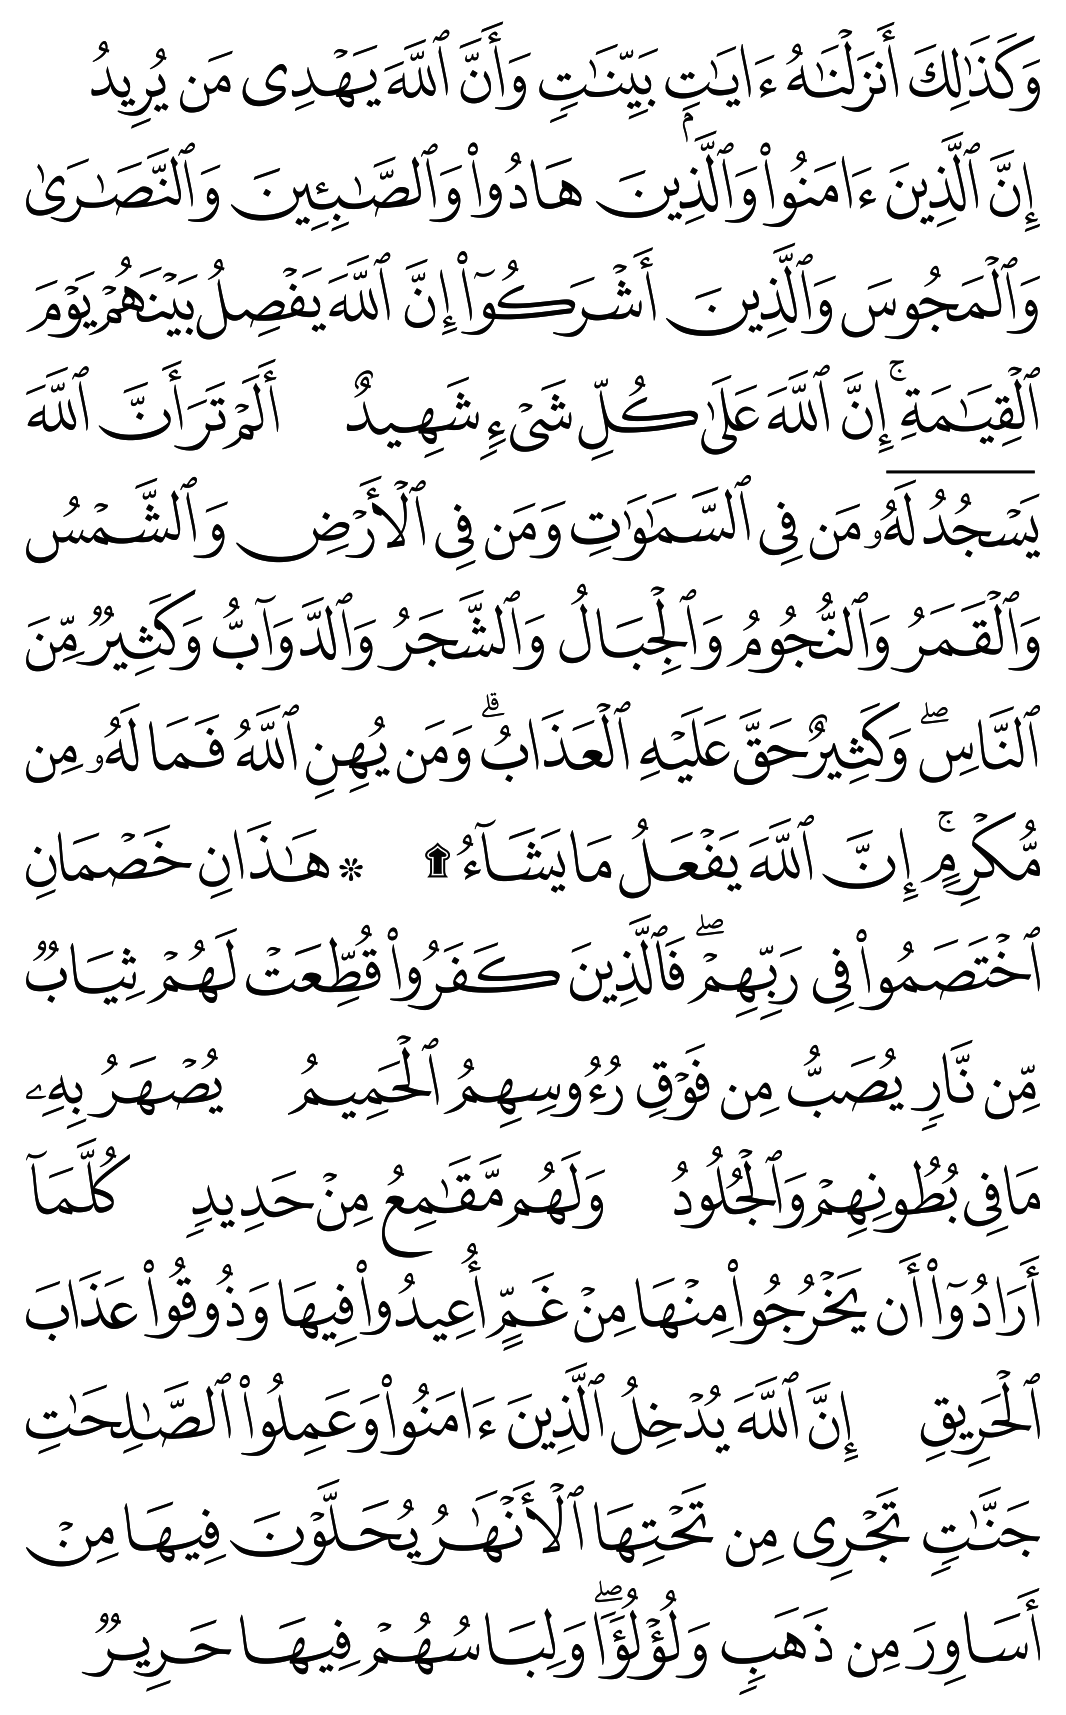 وَكَذَٰلِكَ أَنزَلْنَـٰهُ ءَايَـٰتٍۭ بَيِّنَـٰتٍ وَأَنَّ ٱللَّهَ يَهْدِى مَن يُرِيدُ
إِنَّ ٱلَّذِينَ ءَامَنُوا۟ وَٱلَّذِينَ هَادُوا۟ وَٱلصَّـٰبِـِٔينَ وَٱلنَّصَـٰرَىٰ
وَٱلْمَجُوسَ وَٱلَّذِينَ أَشْرَكُوٓا۟ إِنَّ ٱللَّهَ يَفْصِلُ بَيْنَهُمْ يَوْمَ
ٱلْقِيَـٰمَةِ ۚ إِنَّ ٱللَّهَ عَلَىٰ كُلِّ شَىْءٍ شَهِيدٌ أَلَمْ تَرَ أَنَّ ٱللَّهَ
يَسْجُدُ لَهُۥ مَن فِى ٱلسَّمَـٰوَٰتِ وَمَن فِى ٱلْأَرْضِ وَٱلشَّمْسُ
وَٱلْقَمَرُ وَٱلنُّجُومُ وَٱلْجِبَالُ وَٱلشَّجَرُ وَٱلدَّوَآبُّ وَكَثِيرٌ مِّنَ
ٱلنَّاسِ ۖ وَكَثِيرٌ حَقَّ عَلَيْهِ ٱلْعَذَابُ ۗ وَمَن يُهِنِ ٱللَّهُ فَمَا لَهُۥ مِن
مُّكْرِمٍ ۚ إِنَّ ٱللَّهَ يَفْعَلُ مَا يَشَآءُ ۩ ❊ هَـٰذَانِ خَصْمَانِ
ٱخْتَصَمُوا۟ فِى رَبِّهِمْ ۖ فَٱلَّذِينَ كَفَرُوا۟ قُطِّعَتْ لَهُمْ ثِيَابٌ
مِّن نَّارٍ يُصَبُّ مِن فَوْقِ رُءُوسِهِمُ ٱلْحَمِيمُ يُصْهَرُ بِهِۦ
مَا فِى بُطُونِهِمْ وَٱلْجُلُودُ وَلَهُم مَّقَـٰمِعُ مِنْ حَدِيدٍ كُلَّمَآ
أَرَادُوٓا۟ أَن يَخْرُجُوا۟ مِنْهَا مِنْ غَمٍّ أُعِيدُوا۟ فِيهَا وَذُوقُوا۟ عَذَابَ
ٱلْحَرِيقِ إِنَّ ٱللَّهَ يُدْخِلُ ٱلَّذِينَ ءَامَنُوا۟ وَعَمِلُوا۟ ٱلصَّـٰلِحَـٰتِ
جَنَّـٰتٍ تَجْرِى مِن تَحْتِهَا ٱلْأَنْهَـٰرُ يُحَلَّوْنَ فِيهَا مِنْ
أَسَاوِرَ مِن ذَهَبٍ وَلُؤْلُؤًا ۖ وَلِبَاسُهُمْ فِيهَا حَرِيرٌ